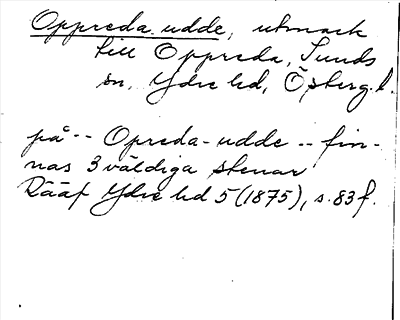 Oppreda udde, utmark
till Oppreda, Sunds
sn, Ydre hd, Östergl.
på -- Opreda-udde -- fin-
nas 3 väldiga stenar
Rääf Ydre hd 5 (1875), s. 83 f.